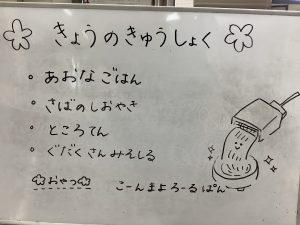 きょうのきゅうしょく
・あおなごはん
・さばのしおやき
・ところてん
・ぐだくさんみそしる
おやつ こーんまよろーるぱん